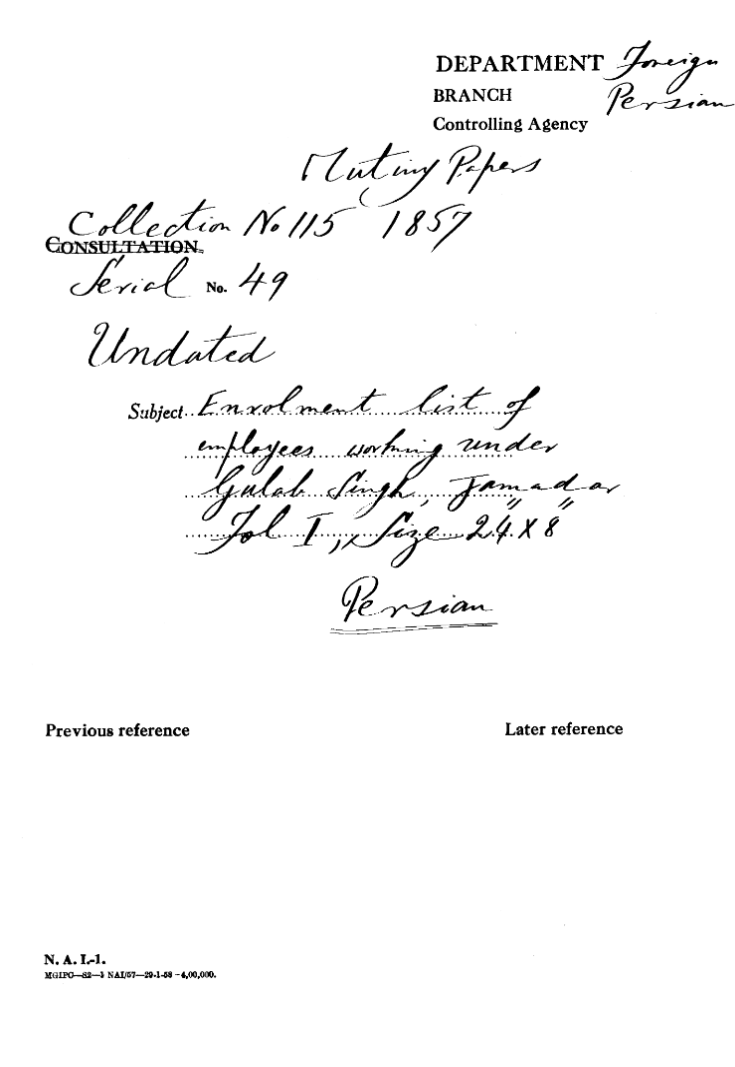 DEPARTMENT Foreign
BRANCH Persian
Controlling Agency
Mutiny Papers
Collection No 115 1857
CONSULTATION
Serial No. 49
Undated
Subject Enrolment list of
employees working under
Gulab Singh, Jamadar
Fol I, Size 24" X 8"
Persian
Previous reference
Later reference
N. A. I.-1.
MGIPC—S2—3 NAI/57—29-1-58 -4,00,000.